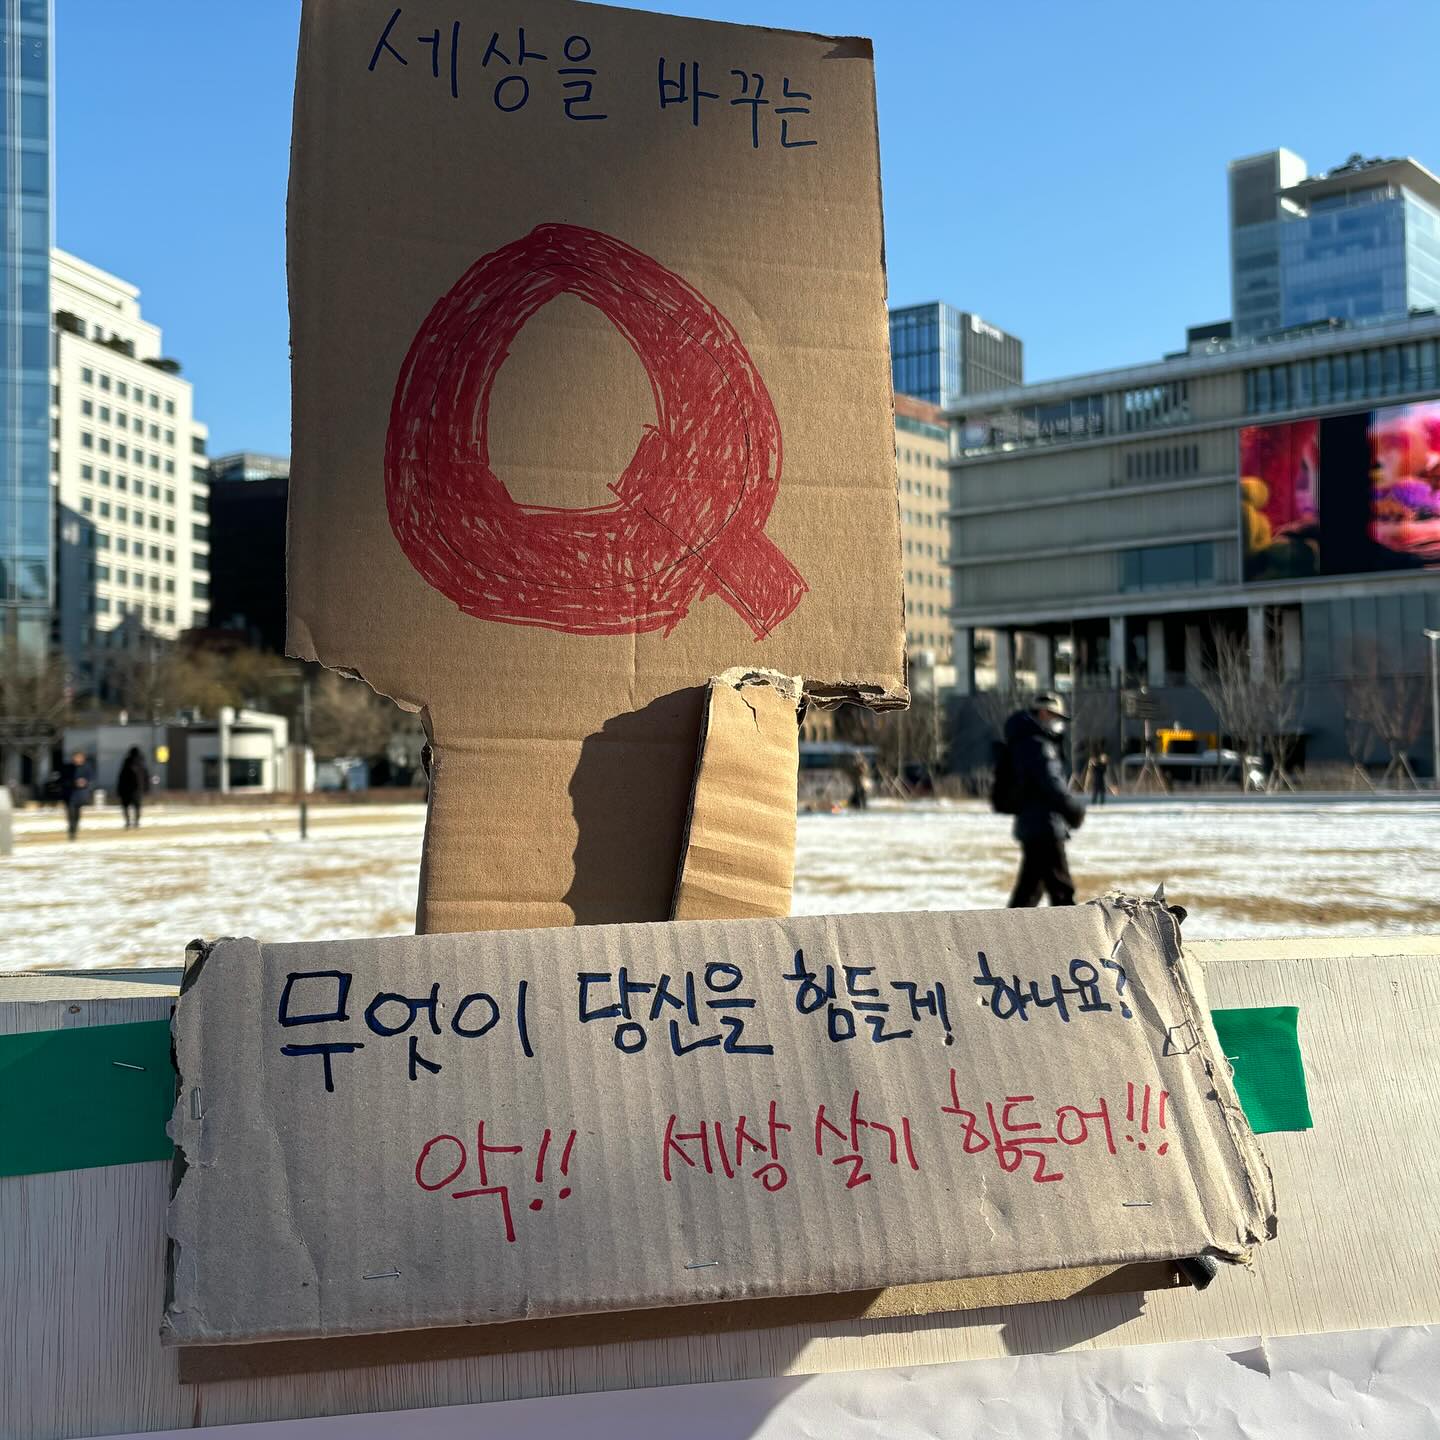 세상을 바꾸는
Q
무엇이 당신을 힘들게 하나요?
악!! 세상 살기 힘들어!!!